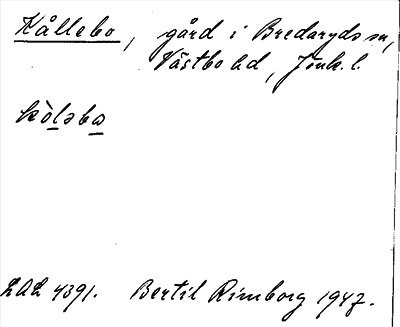 Kållebo, gård i Bredaryds sn,
Västbo hd, Jönk. l.
kòləba
LAL 4391. Bertil Rimborg 1947.